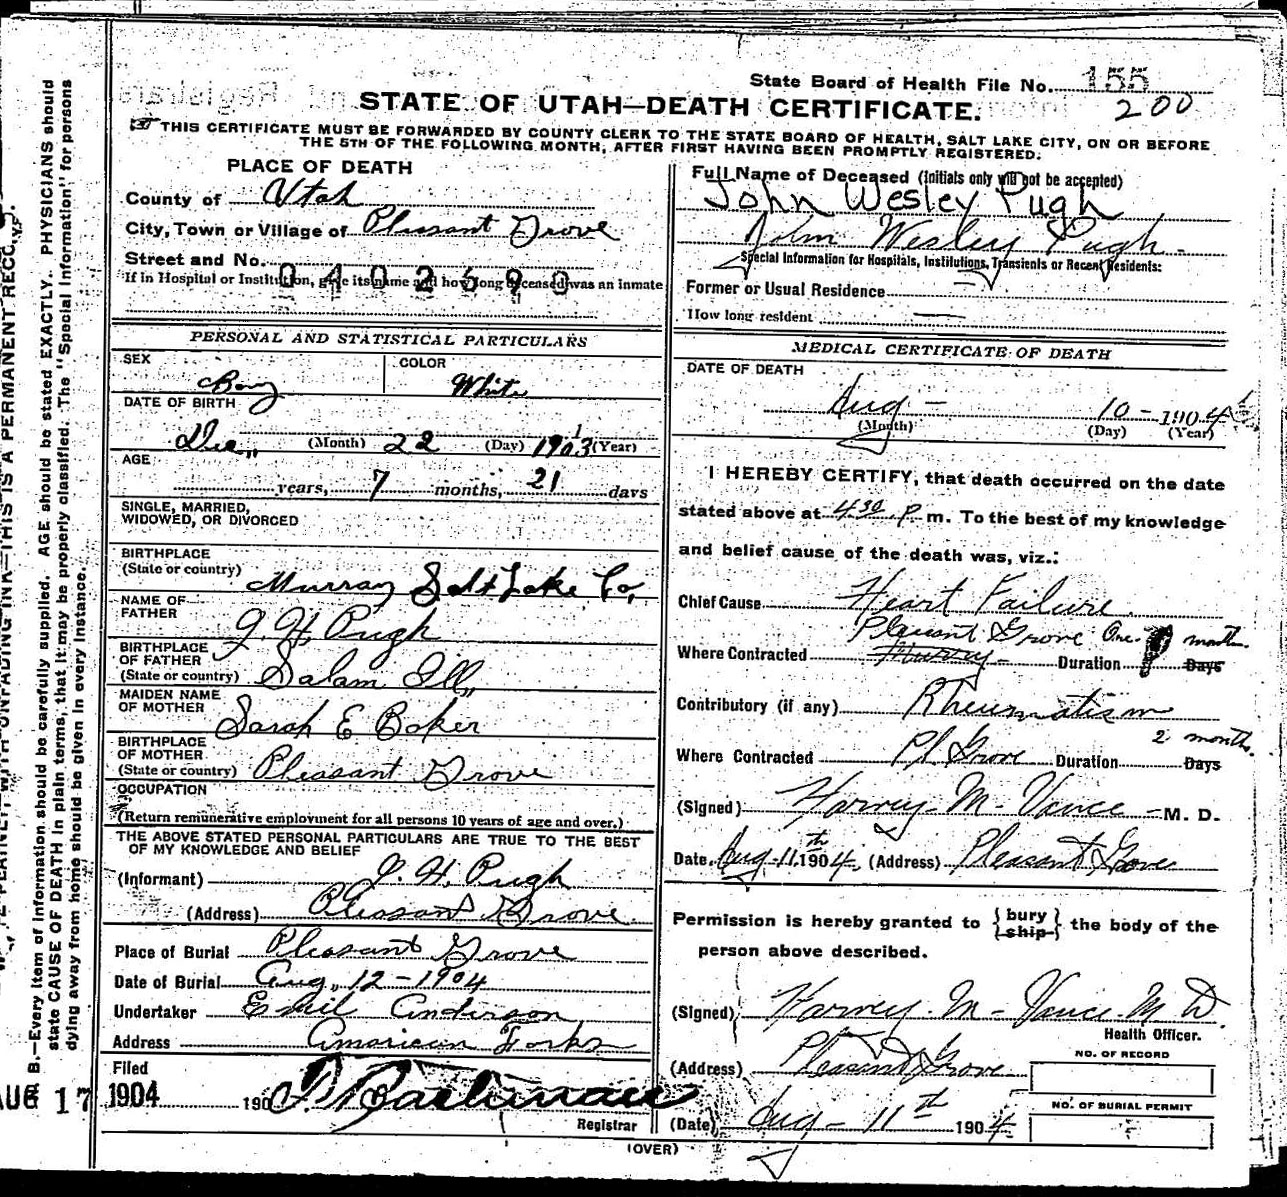 State Board of Health File No. 155
200
STATE OF UTAH—DEATH CERTIFICATE.
THIS CERTIFICATE MUST BE FORWARDED BY COUNTY CLERK TO THE STATE BOARD OF HEALTH, SALT LAKE CITY, ON OR BEFORE
THE 5TH OF THE FOLLOWING MONTH, AFTER FIRST HAVING BEEN PROMPTLY REGISTERED.
PLACE OF DEATH
County of Utah
City, Town or Village of Pleasant Grove
Street and No.
0402690
If in Hospital or Institution, give its name and how long deceased was an inmate
PERSONAL AND STATISTICAL PARTICULARS
SEX Boy
COLOR White
DATE OF BIRTH
Dec (Month) 22 (Day) 1903 (Year)
AGE
years, 7 months, 21 days
SINGLE, MARRIED,
WIDOWED, OR DIVORCED
BIRTHPLACE
(State or country) Murray Salt Lake Co,
NAME OF
FATHER J. H. Pugh
BIRTHPLACE
OF FATHER
(State or country) Salam Ill,,
MAIDEN NAME
OF MOTHER Sarah E Baker
BIRTHPLACE
OF MOTHER
(State or country) Pleasant Grove
OCCUPATION
(Return remunerative employment for all persons 10 years of age and over.)
THE ABOVE STATED PERSONAL PARTICULARS ARE TRUE TO THE BEST
OF MY KNOWLEDGE AND BELIEF
(Informant) J. H. Pugh
(Address) Pleasant Grove.
Place of Burial Pleasant Grove
Date of Burial Aug,, 12-1904
Undertaker Emil Anderson
Address American Forks
Filed
AUG 17 1904 190
Registrar
Full Name of Deceased (Initials only will not be accepted)
John Wesley Pugh
John Wesley Pugh.
Special Information for Hospitals, Institutions, Transients or Recent Residents:
Former or Usual Residence
How long resident
MEDICAL CERTIFICATE OF DEATH
DATE OF DEATH
Aug - 10 - 1904
(Month) (Day) (Year)
I HEREBY CERTIFY, that death occurred on the date
stated above at 4:30 P m. To the best of my knowledge
and belief cause of the death was, viz.:
Chief Cause Heart Failure.
Pleasant Grove One month.
Where Contracted Murray Duration Days
Contributory (if any) Rheumatism
2 months.
Where Contracted Pl Grove Duration Days
(Signed) Harvey M. Vance M. D.
Date Aug 11th 1904 (Address) Pleasant Grove
Permission is hereby granted to {bury
{ship} the body of the
person above described.
(Signed) Harvey M - Vance M D.
Health Officer.
(Address) Pleasant Grove
NO. OF RECORD
NO. OF BURIAL PERMIT
(Date) Aug - 11th 1904
(OVER)
B.—Every item of Information should be carefully supplied. AGE should be stated EXACTLY. PHYSICIANS should
state CAUSE OF DEATH in plain terms, that it may be properly classified. The "Special Information" for persons
dying away from home should be given in every instance.
UNFADING INK—THIS IS A PERMANENT